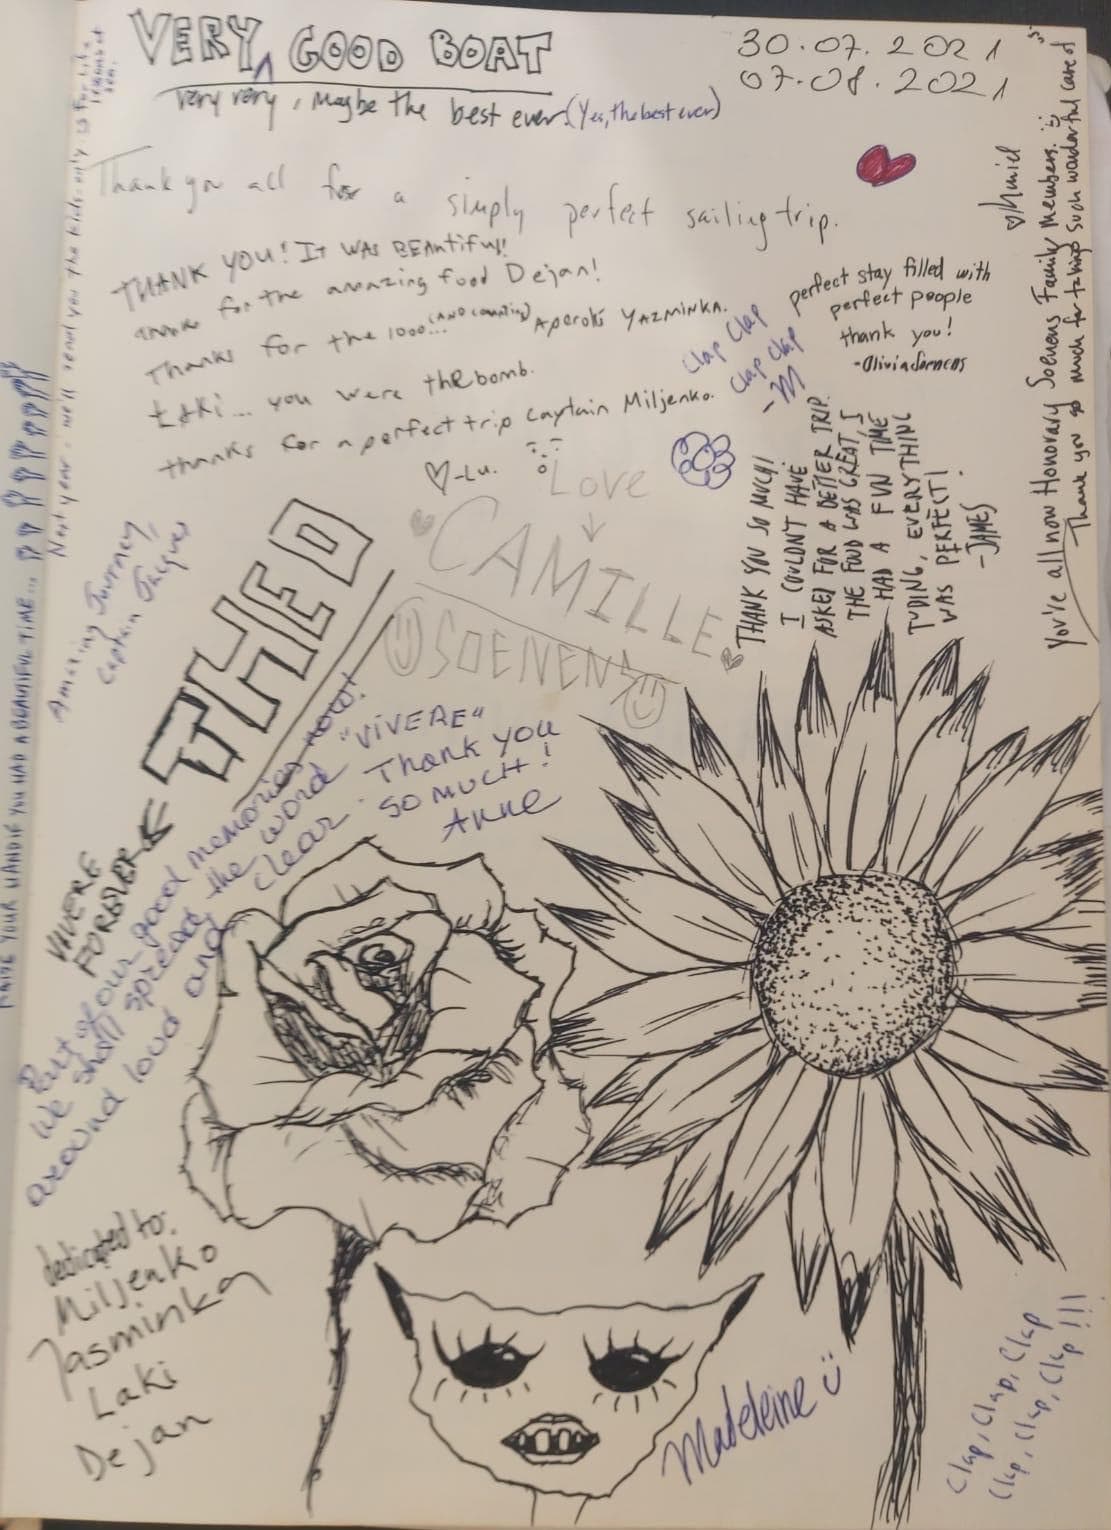 VERY GOOD BOAT
30.07.2021
07.08.2021
very very, Maybe the best ever (Yes, the best ever)
Thank you all for a simply perfect sailing trip.
THANK YOU! IT WAS BEAutiful!
for the amazing food Dejan!
Thanks for the 1000... (AND counting) Aperols YAZMINKA.
Laki... you were the bomb.
thanks for a perfect trip Captain Miljenko.
-Lu.
Clap Clap
Clap Clap
-M
perfect stay filled with
perfect people
thank you!
-Olivia Soenens
THANK YOU SO MUCH!
I COULDN'T HAVE
ASKED FOR A BETTER TRIP.
THE FOOD WAS GREAT, I
HAD A FUN TIME
TUBING, EVERYTHING
WAS PERFECT!
-JAMES
You're all now Honorary Soenens Family Members.
Thank you so much for taking such wonderful care of
Love
CAMILLE
SOENENS
THEO
VIVERE
FOREVER
Amazing Journey,
Captain Jacques
Next year, we'll send you the kids only
RAISE YOUR HAND IF YOU HAD A BEAUTIFUL TIME...
Part of our good memories now!
We shall spread the word "VIVERE"
around loud and clear. Thank you
SO MUCH!
Anne
dedicated to:
Miljenko
Jasminka
Laki
Dejan
Madeleine
Clap, Clap, Clap
Clap, Clap, Clap !!!